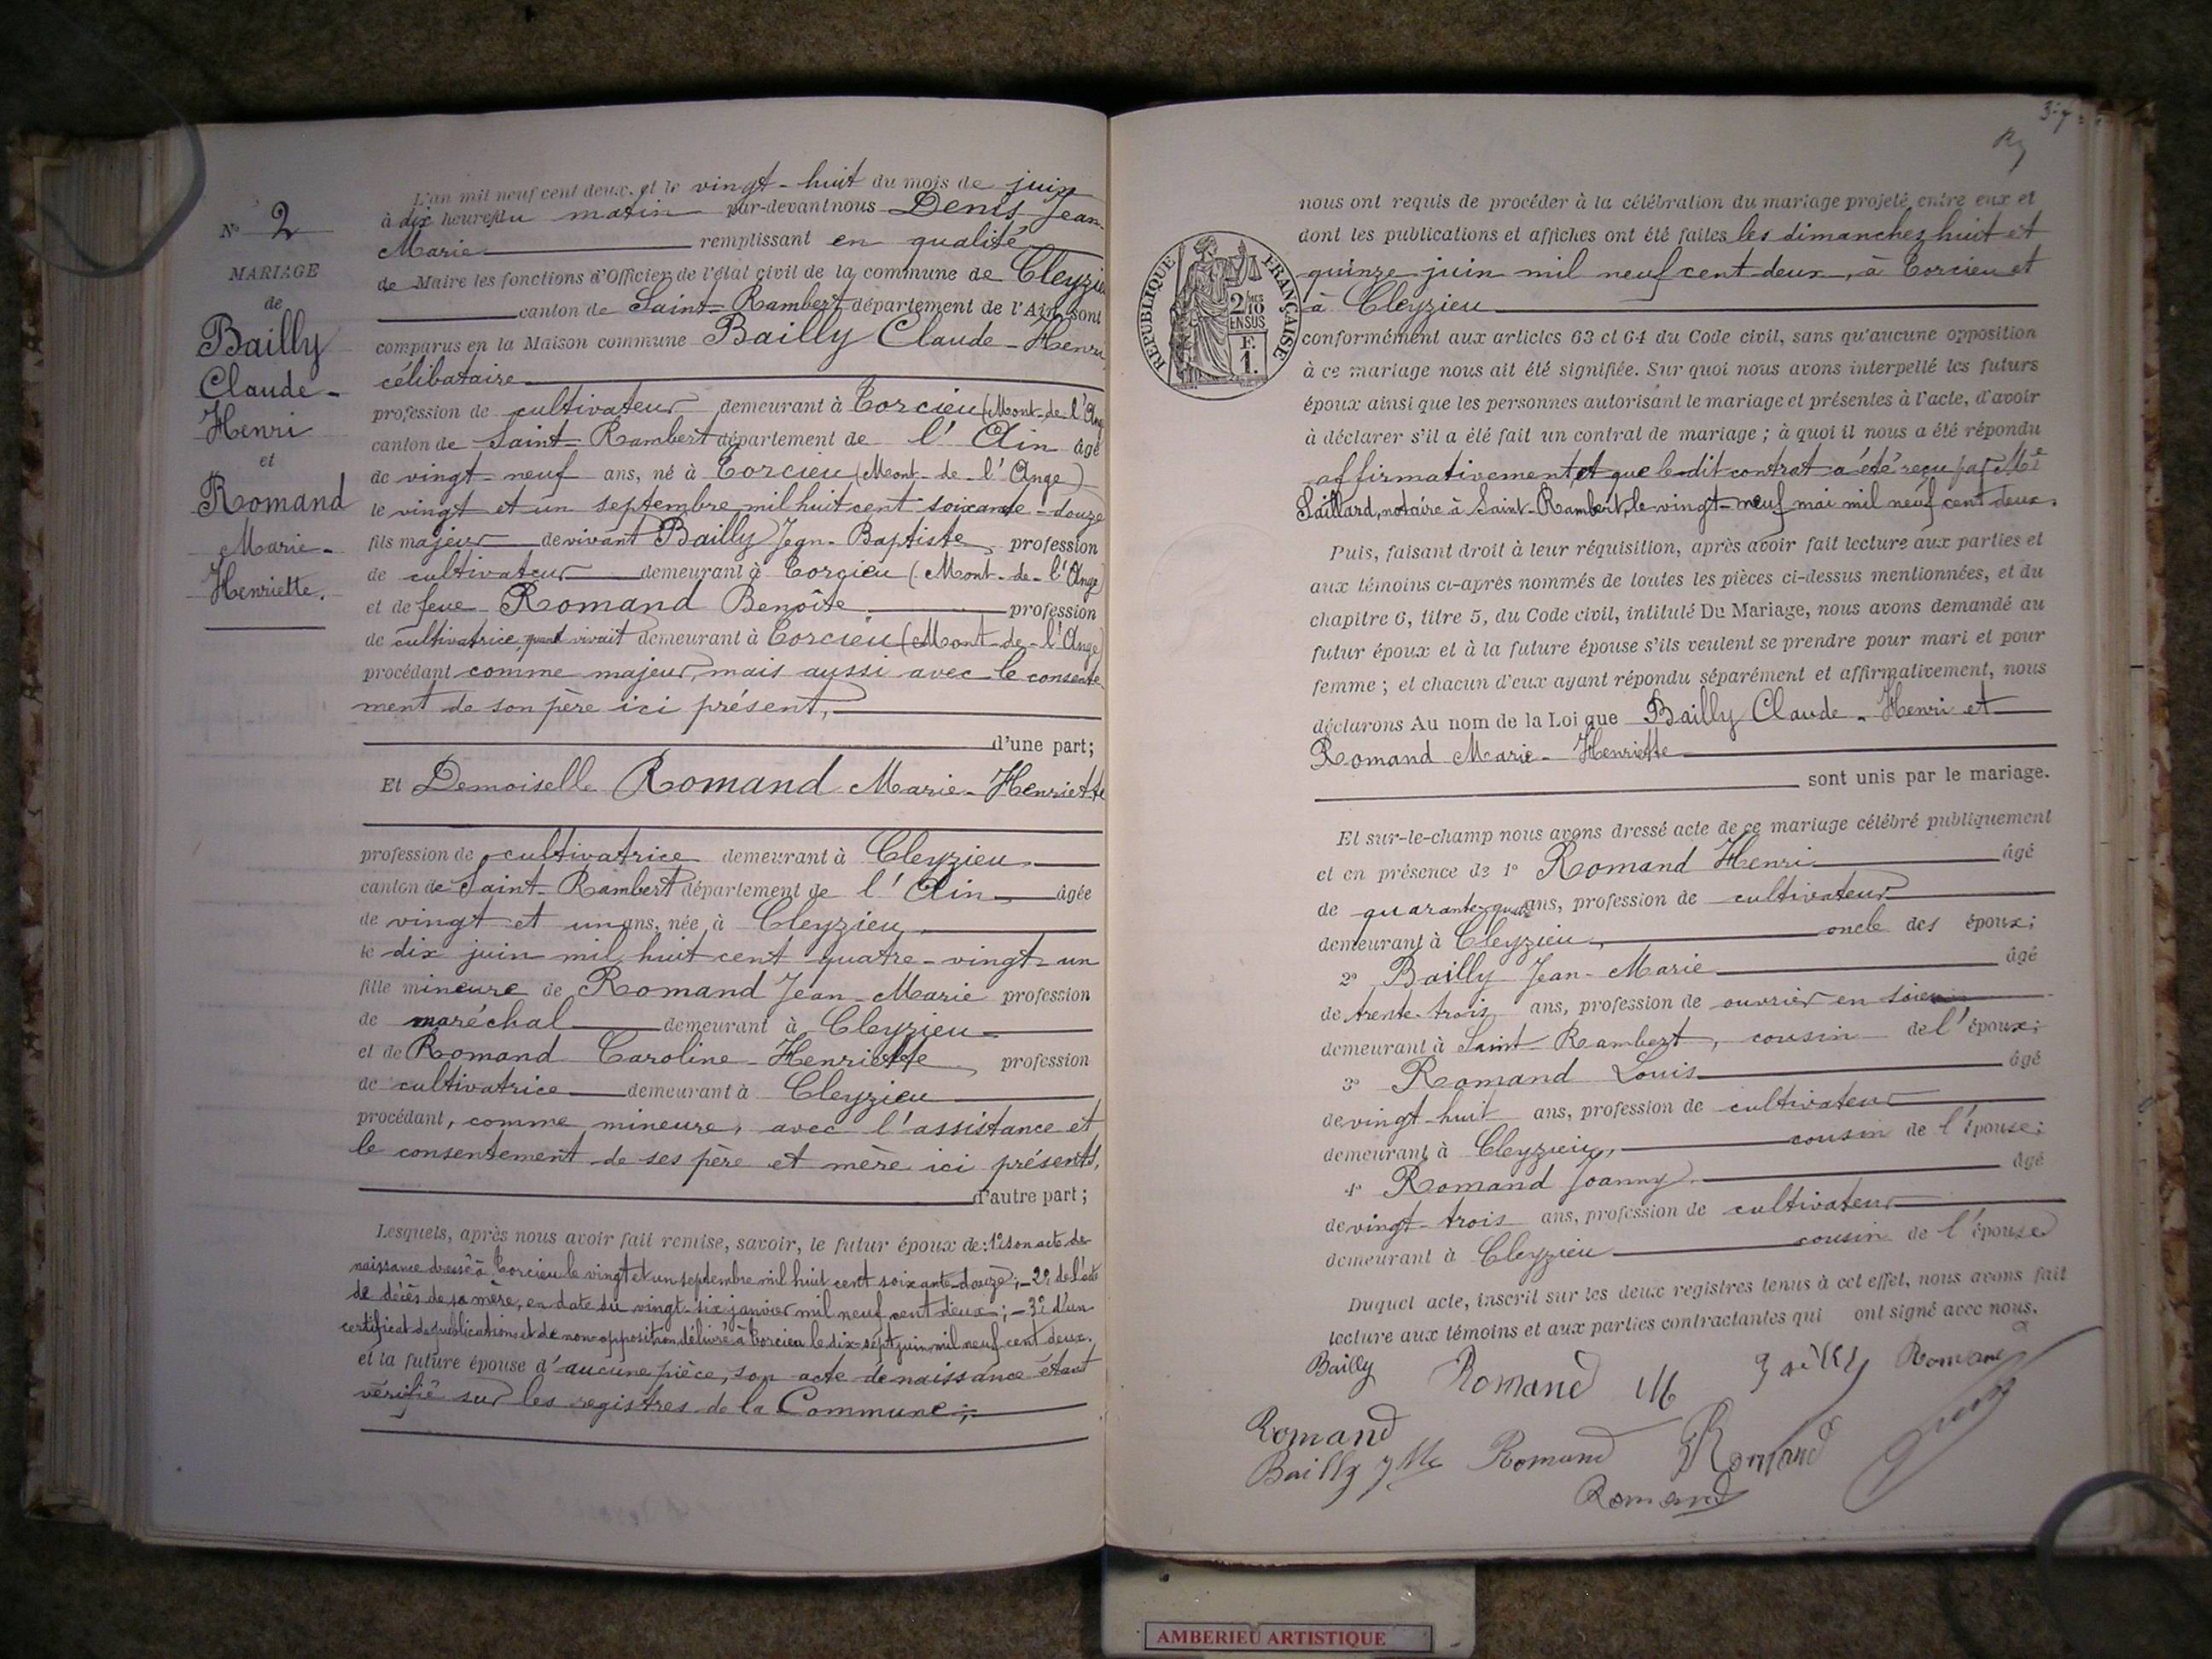 N° 2
MARIAGE
de
Bailly
Claude-
Henri
et
Romand
Marie-
Henriette.
L'an mil neuf cent deux, et le vingt-huit du mois de juin
à dix heures du matin par-devant nous Denis Jean-
Marie remplissant en qualité
de Maire les fonctions d'Officier de l'état civil de la commune de Cleyzieu
canton de Saint-Rambert département de l'Ain sont
comparus en la Maison commune Bailly Claude-Henri
célibataire
profession de cultivateur demeurant à Torcieu (Mont-de-l'Ange
canton de Saint-Rambert département de l'Ain âgé
de vingt-neuf ans, né à Torcieu (Mont-de-l'Ange)
le vingt et un septembre mil huit cent soixante-douze
fils majeur de vivant Bailly Jean-Baptiste profession
de cultivateur demeurant à Torcieu (Mont-de-l'Ange)
et de feue Romand Benoîte profession
de cultivatrice, quand vivait demeurant à Torcieu (Mont-de-l'Ange)
procédant comme majeur, mais aussi avec le consente-
ment de son père ici présent,
d'une part;
Et Demoiselle Romand Marie-Henriette
profession de cultivatrice demeurant à Cleyzieu
canton de Saint-Rambert département de l'Ain âgée
de vingt et un ans, née à Cleyzieu,
le dix juin mil huit cent quatre-vingt-un
fille mineure de Romand Jean-Marie profession
de maréchal demeurant à Cleyzieu
et de Romand Caroline-Henriette profession
de cultivatrice demeurant à Cleyzieu
procédant, comme mineure, avec l'assistance et
le consentement de ses père et mère ici présents,
d'autre part;
Lesquels, après nous avoir fait remise, savoir, le futur époux de: 1° son acte de
naissance dressé à Torcieu le vingt et un septembre mil huit cent soixante-douze; - 2° de l'acte
de décès de sa mère, en date du vingt-six janvier mil neuf cent deux; - 3° d'un
certificat de publications et de non-opposition délivré à Torcieu le dix-sept juin mil neuf cent deux.
et la future épouse d'aucune pièce, son acte de naissance étant
vérifié sur les registres de la Commune;
nous ont requis de procéder à la célébration du mariage projeté entre eux et
dont les publications et affiches ont été faites les dimanches huit et
quinze juin mil neuf cent deux, à Torcieu et
à Cleyzieu
RÉPUBLIQUE FRANÇAISE
2/10
EN SUS
F.
1.
conformément aux articles 63 et 64 du Code civil, sans qu'aucune opposition
à ce mariage nous ait été signifiée. Sur quoi nous avons interpellé les futurs
époux ainsi que les personnes autorisant le mariage et présentes à l'acte, d'avoir
à déclarer s'il a été fait un contrat de mariage; à quoi il nous a été répondu
affirmativement, et que le-dit contrat a été reçu par Me
Saillard, notaire à Saint-Rambert, le vingt-neuf mai mil neuf cent deux.
Puis, faisant droit à leur réquisition, après avoir fait lecture aux parties et
aux témoins ci-après nommés de toutes les pièces ci-dessus mentionnées, et du
chapitre 6, titre 5, du Code civil, intitulé Du Mariage, nous avons demandé au
futur époux et à la future épouse s'ils veulent se prendre pour mari et pour
femme; et chacun d'eux ayant répondu séparément et affirmativement, nous
déclarons Au nom de la Loi que Bailly Claude-Henri et
Romand Marie-Henriette
sont unis par le mariage.
Et sur-le-champ nous avons dressé acte de ce mariage célébré publiquement
et en présence de 1° Romand Henri âgé
de quarante-quatre ans, profession de cultivateur
demeurant à Cleyzieu, oncle des époux;
2° Bailly Jean-Marie âgé
de trente-trois ans, profession de ouvrier en soie
demeurant à Saint-Rambert, cousin de l'époux;
3° Romand Louis âgé
de vingt-huit ans, profession de cultivateur
demeurant à Cleyzieu, cousin de l'épouse;
4° Romand Joanny âgé
de vingt-trois ans, profession de cultivateur
demeurant à Cleyzieu cousin de l'épouse
Duquel acte, inscrit sur les deux registres tenus à cet effet, nous avons fait
lecture aux témoins et aux parties contractantes qui ont signé avec nous.
Bailly Romand M Bailly Romand
Romand
Bailly JM Romand Romand
Romand
AMBERIEU ARTISTIQUE